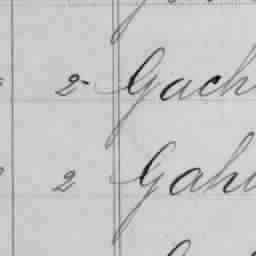 2 Gach
2 Gah